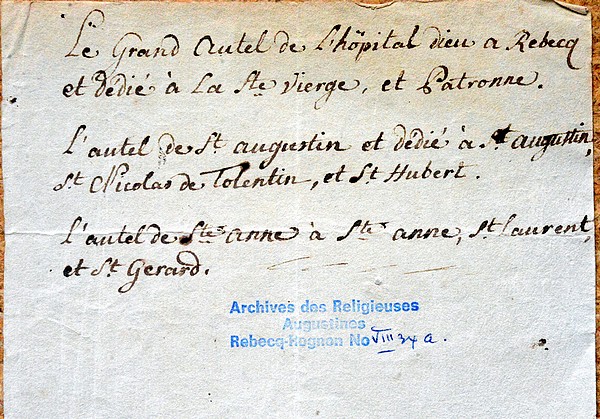 Le Grand Autel de L'hôpital dieu a Rebecq
et dédié à La Ste Vierge, et Patronne.
L'autel de St augustin et dédié à St augustin,
St Nicolas de Tolentin, et St Hubert.
L'autel de Ste anne à Ste anne, St Laurent,
et St Gerard.
Archives des Religieuses
Augustines
Rebecq-Rognon No VIII 34 a.